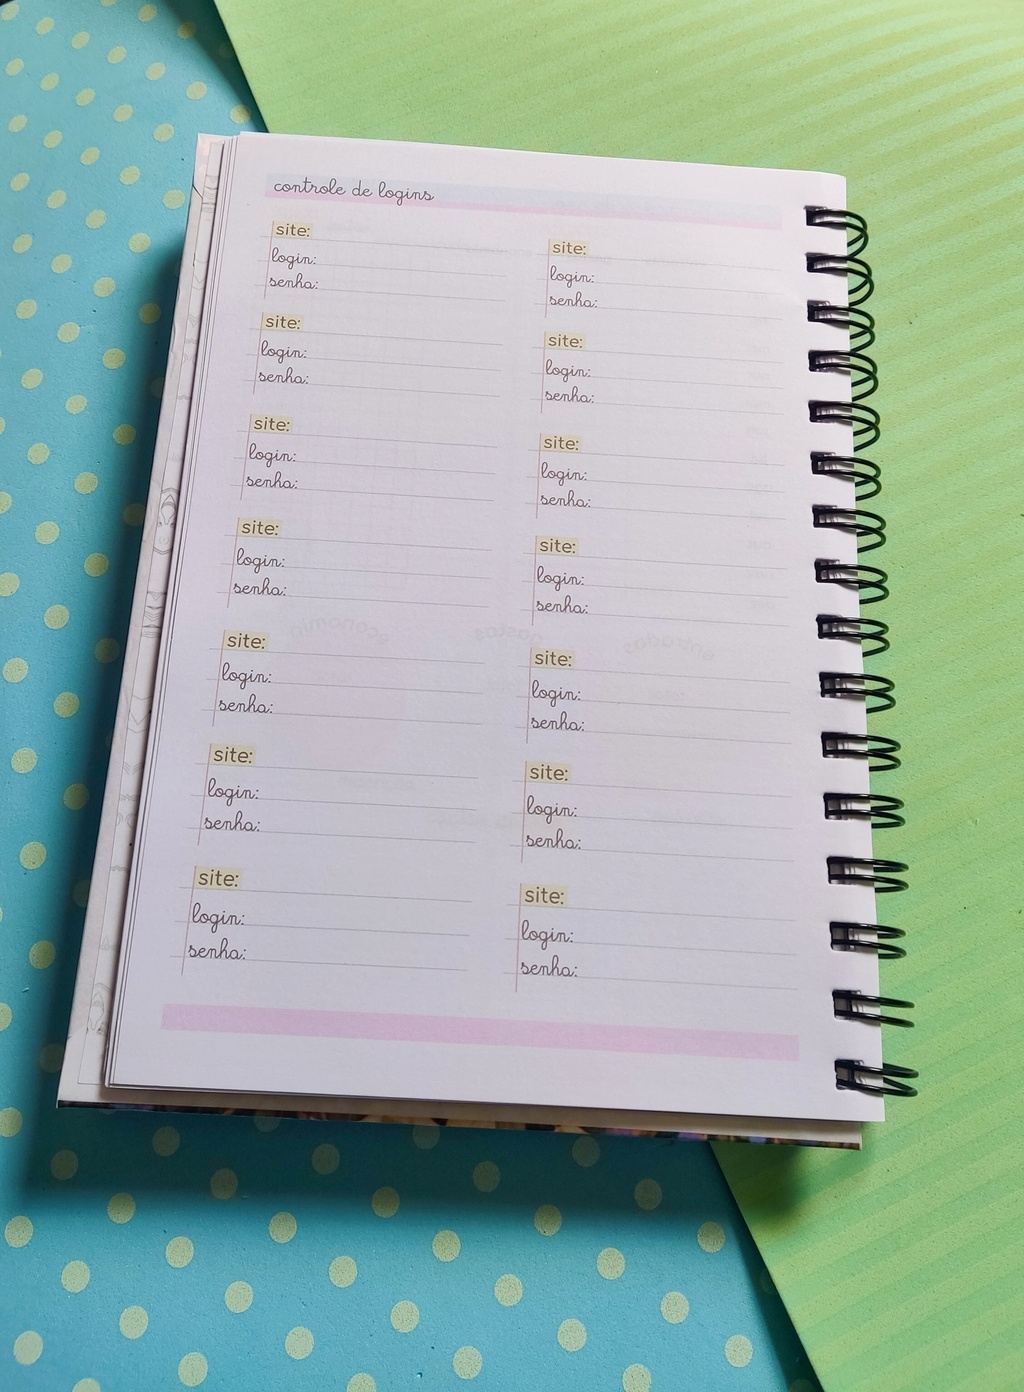 controle de logins
site:
login:
senha:
site:
login:
senha:
site:
login:
senha:
site:
login:
senha:
site:
login:
senha:
site:
login:
senha:
site:
login:
senha:
site:
login:
senha:
site:
login:
senha:
site:
login:
senha:
site:
login:
senha:
site:
login:
senha:
site:
login:
senha:
site:
login:
senha:
economia
gastos
entradas